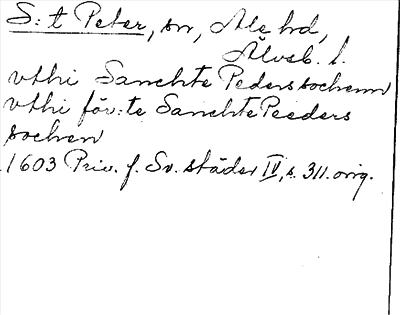 S:t Peter, sn, Ale hd,
Älvsb. l.
vthi Sanchte Peders sochenn
vthi för:te Sanchte Peeders
sochen
1603 Priv. f. Sv. städer IV, s. 311. orig.